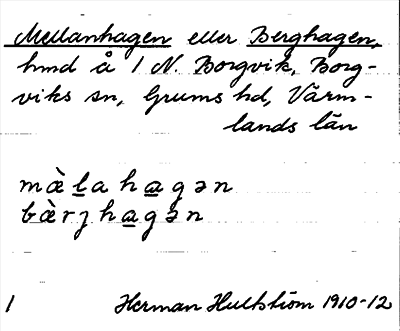 Mellanhagen eller Berghagen,
hmd å 1 N. Borgvik, Borg-
viks sn, Grums hd, Värm-
lands län
mæ̀l̲a ha̲gən
bæ̀rȷha̲gən
1 Herman Hultström 1910-12